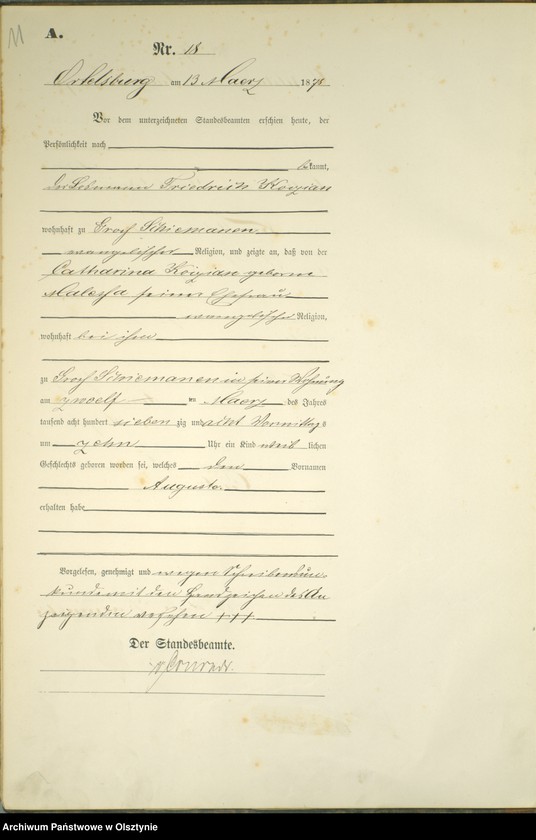 11
A.
Nr. 18
Ortelsburg am 13 Maerz 1878
Vor dem unterzeichneten Standesbeamten erschien heute, der
Persönlichkeit nach
bekannt,
der Losmann Friedrich
wohnhaft zu Groß Schiemanen
evangelischer Religion, und zeigte an, daß von der
Catharina geborene
seiner Ehefrau
evangelische Religion,
wohnhaft bei ihm
zu Groß Schiemanen in seiner Wohnung
am zwoelf ten Maerz des Jahres
tausend acht hundert sieben zig und acht Vormittags
um zehn Uhr ein Kind weib lichen
Geschlechts geboren worden sei, welches den Vornamen
Auguste
erhalten habe
Vorgelesen, genehmigt und wegen Schreibensun
kunde mit den Handzeichen des An
zeigenden versehen +++
Der Standesbeamte.
Conrad.
Archiwum Państwowe w Olsztynie